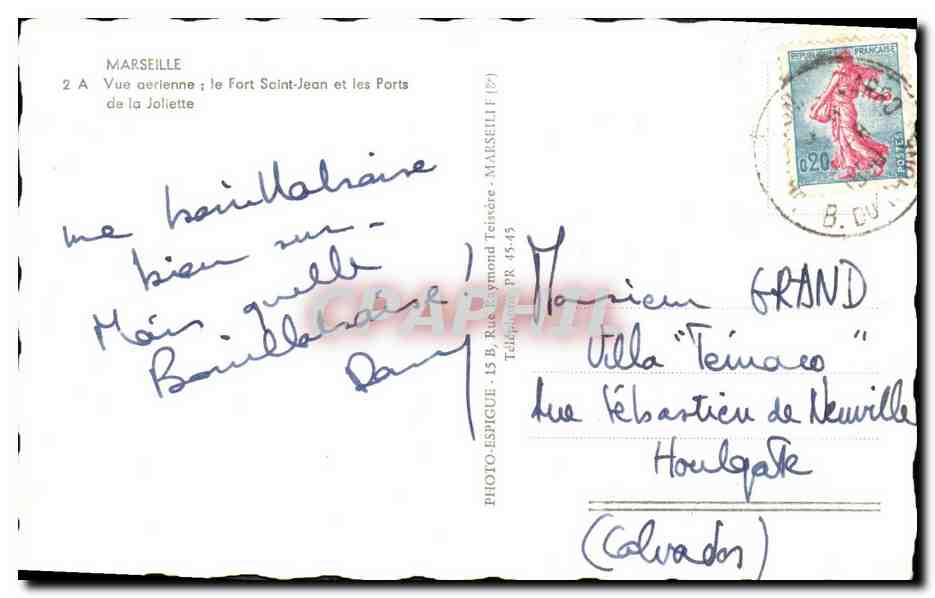 MARSEILLE
2 A Vue aerienne ; le Fort Saint-Jean et les Ports
de la Joliette
une bouillabaisse
bien sur -
Mais quelle
Bouillabaisse !
Dany
PHOTO-ESPIGUE - 15 B, Rue Raymond Teissère - MARSEILLE (8e)
Téléphone PR 45-45
CPAPHIL
REPUBLIQUE FRANÇAISE
0,20
POSTES
B. DU
Monsieur GRAND
Villa "Teinaco"
Rue Sébastien de Neuville
Houlgate
(Calvados)